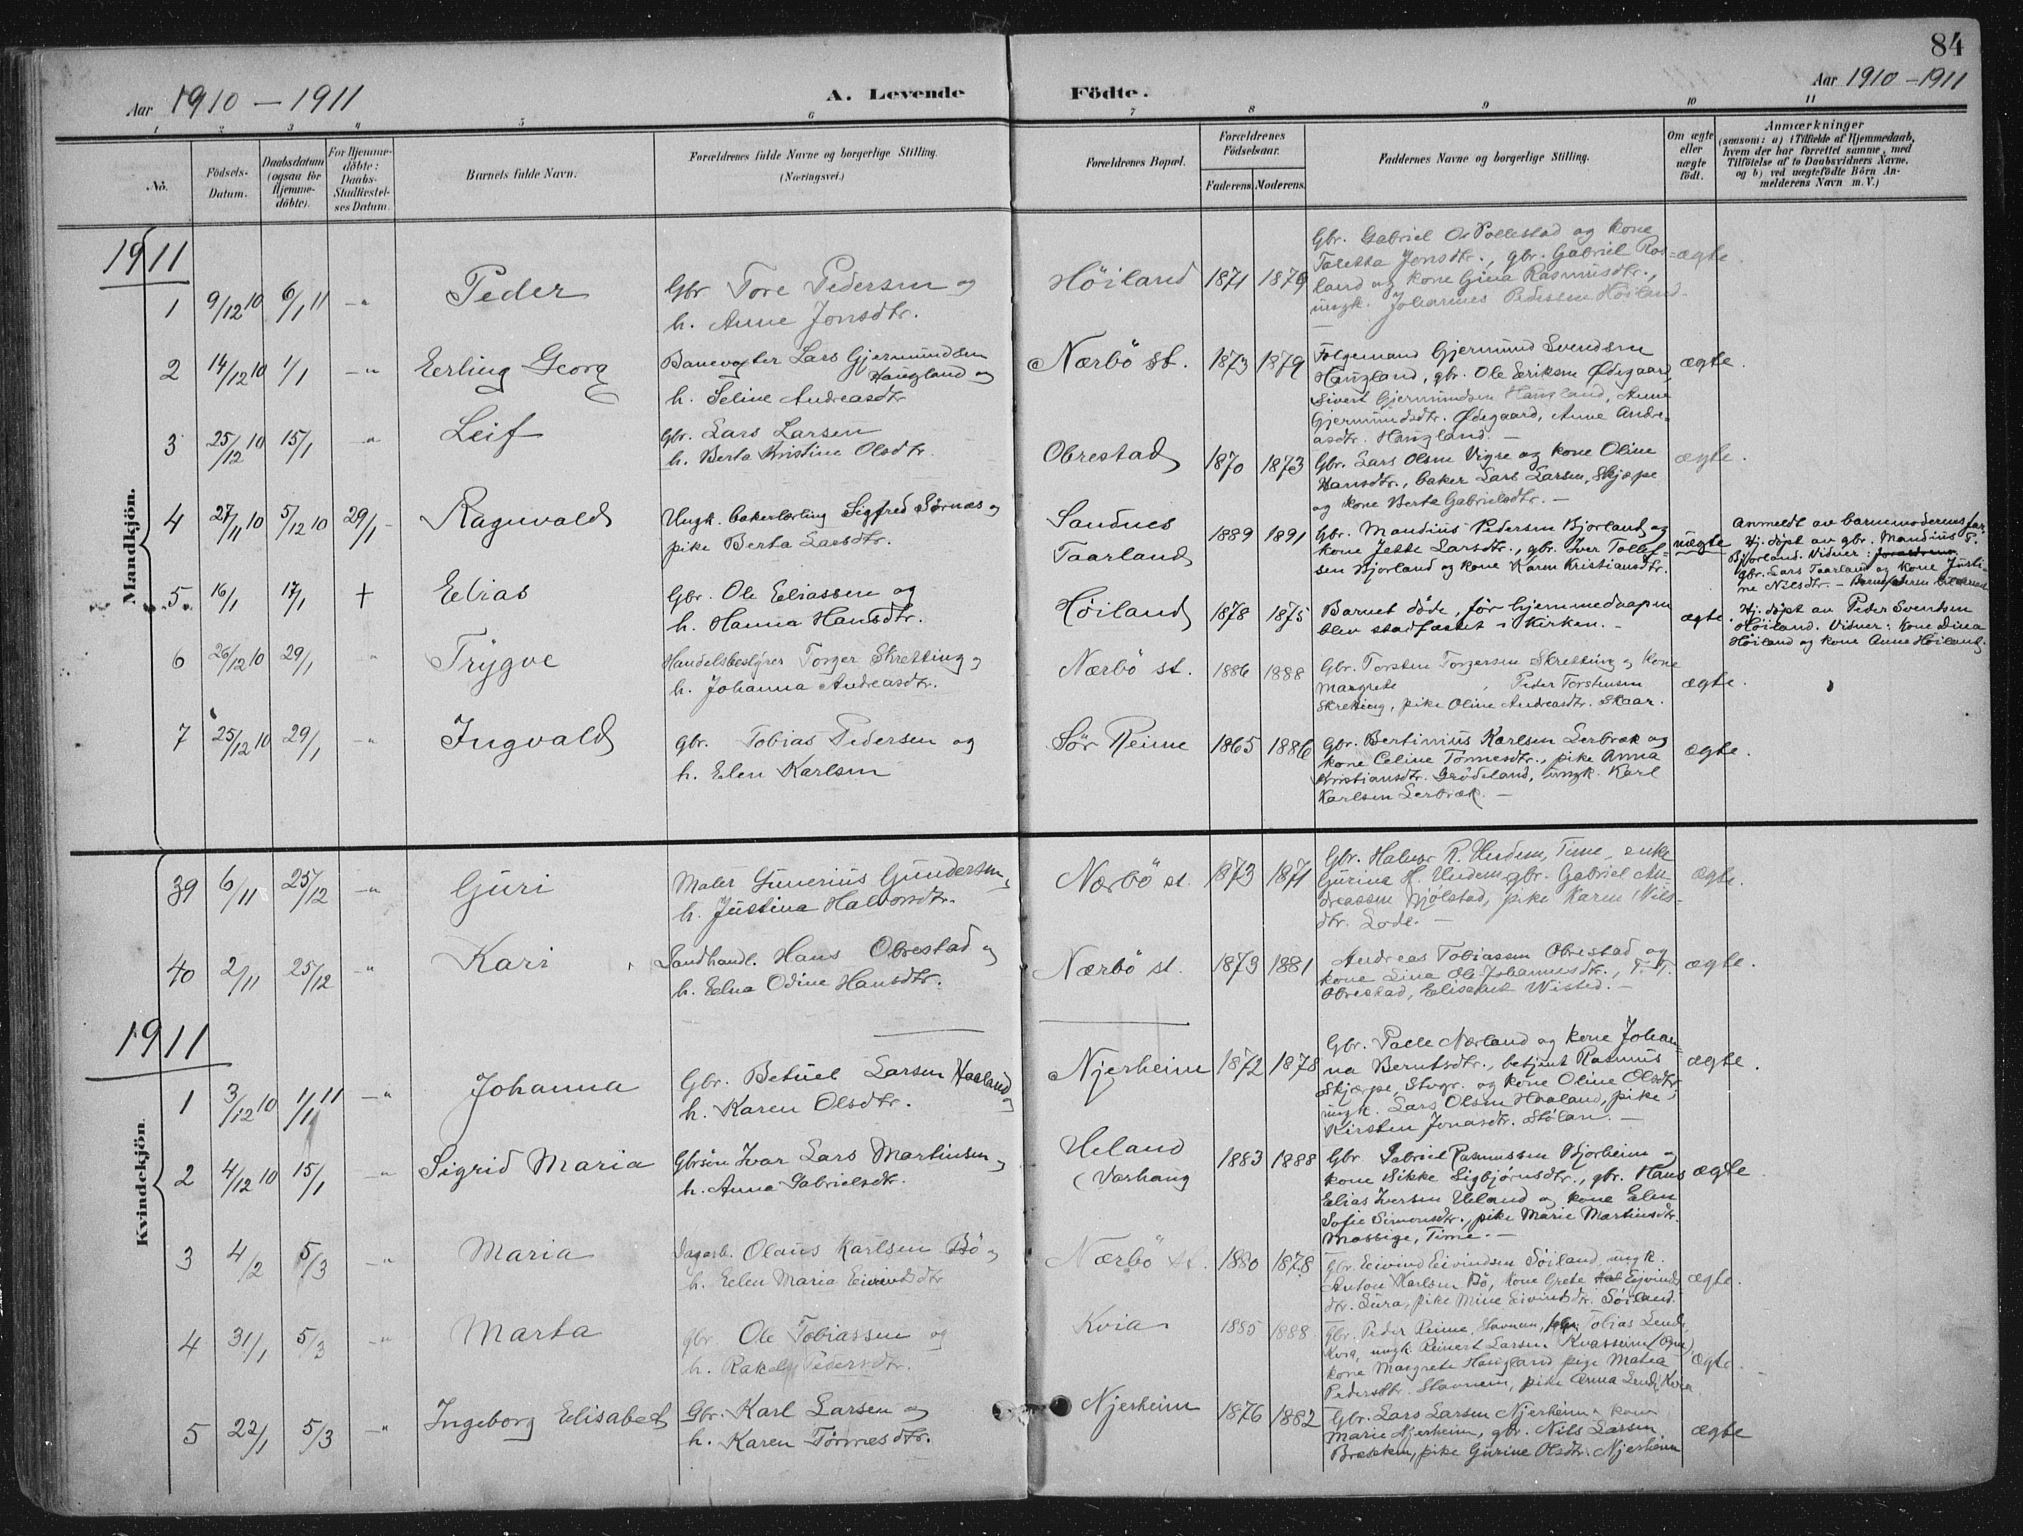 84
Aar 1910 – 1911
A. Levende Födte.
Aar 1910 – 1911
1 2 3 4 5 6 7 8 9 10 11
No.
Födsels-
Datum.
Daabsdatum
(ogsaa for
Hjemme-
döbte).
For Hjemme-
döbte:
Daabs-
Stadfæstel-
ses Datum.
Barnets fulde Navn.
Forældrenes fulde Navne og borgerlige Stilling.
(Næringsvei.)
Forældrenes Bopæl.
Forældrenes
Födselsaar.
Faderens. Moderens.
Faddernes Navne og borgerlige Stilling.
Om ægte
eller
uægte
födt.
Anmærkninger
(saasom: a) i Tilfælde af Hjemmedaab,
hvem der har forrettet samme, med
Tilföielse af to Daabsvidners Navne.
og b) ved uægtefödte Börn An-
melderens Navn m. V.)
Mandkjön.
1911
1 9/12 10 6/1 11 –"– Peder
Gbr Tore Pedersen og
h. Anne Jonsdtr.
Höiland 1871
Gbr. Gabriel Pollestad og kone
Taletta Jonsdtr., gbr. Gabriel Ros-
land og kone Gina Rasmusdtr.,
ungk. Johannes Pedersen Höiland.
ægte
2 14/12 10 1/1 –"– Erling Georg
Banevogter Lars Gjermundsen
Haugland og
h. Seline Andreasdtr
Nærbö st. 1873 1879
Følgemand Gjermund Svendsen
Haugland, gbr. Ole Eriksen Ødegaard,
Sivert Gjermundsen Haugland, Anne
Gjermundsdtr. Ødegaard, Anne Andre-
asdtr. Haugland. –
ægte.
3 25/12 10 15/1 –"– Leif
Gbr. Lars Larsen
h. Berta Kristine Olsdtr.
Obrestad 1870 1873
Gbr. Lars Olsen Vigre og kone Oline
Hansdtr., baker Lars Larsen, Skjæpe
og kone Berta Gabrielsdtr. –
ægte.
4 27/11 10 5/12 10 29/1 – Ragnvald
Ungk. bakerlærling Sigfred Sørnæs og
pike Berta Larsdtr.
Sandnes
Taarland 1889 1891
Gbr. Mandius Pedersen Bjorland og
kone Jette Larsdtr., gbr. Iver Tollef-
sen Bjorland og kone Karen Kristiansdtr.
uægte
Anmeldt av barnemoderens far
Hj. døpt av gbr. Mandius P.
Bjorland. Vidner:
gbr. Lars Taarland og kone Justi-
ne Nilsdtr. –
5 16/1 17/1 + Elias
Gbr. Ole Eliassen og
h. Hanna Hansdtr.
Höiland 1878 1875
Barnet døde, før hjemmedaapen
blev stadfæstet i Kirken. –
ægte.
Hj. døpt av Peder Svendsen
Höiland. Vidner: Kone Dina
Höiland og kone Anne Höiland.
6 26/12 10 29/1 " Trygve
Handelsbestyrer Torger Skretting og
h. Johanna Andreasdtr.
Nærbö st. 1886 1888
Gbr. Torsten Torgersen Skretting og kone
Margrete , Peder Torstensen
Skretting, pike Oline Andreasdtr. Skaar.
ægte.
7 25/12 10 29/1 –"– Ingvald
gbr. Tobias Pedersen og
h. Elen Karlsen
Sör Reime 1865 1886
Gbr. Bertinius Karlsen Lerbræk og
kone Celine Tönnesdtr., pike Anna
Kristiansdtr. Grödeland, ungk. Karl
Karlsen Lerbræk. –
ægte.
Kvindekjön.
39 6/11 25/12 –"– Guri
Maler Gunerius Gundersen,
h. Justina Halvorsdtr.
Nærbö st. 1873 1871
Gbr. Halvor R. Undem, Time, enke
Gurina H. Undem, gbr. Gabriel An-
dreassen Njølstad, pike Karen Nils-
dtr. Lode. –
ægte.
40 2/11 25/12 –"– Kari
Landhandl. Hans Obrestad og
h. Elna Odine Hansdtr.
Nærbö st. 1873 1881
Andreas Tobiassen Obrestad og
kone Lina Ole Johannesdtr., T. T.
Obrestad, Elisabet Wisted. –
ægte.
1911
1 3/12 10 1/1 11 –"– Johanna
Gbr. Betuel Larsen Haaland og
h. Karen Olsdtr.
Njerheim 1872 1878
Gbr. Palle Nærland og kone Johan-
na Berntsdtr., betjent Rasmus
Skjæpe, Stvgr. og kone Oline Olsdtr.
ungk. Lars Olsen Haaland, pike
Kirsten Jonasdtr. Stölan. –
ægte.
2 4/12 10 15/1 –"– Sigrid Maria
Gbrsön Ivar Lars Martinsen og
h. Anna Gabrielsdtr.
Ueland
(Varhaug 1883 1888
Gbr. Gabriel Rasmussen Bjorheim og
kone Sikke Sigbjørnsdtr., gbr. Hans
Elias Iversen Ueland og kone Elen
Sofie Simonsdtr., pike Marie Martinsdtr.
Mossige, Time. –
ægte
3 4/2 5/3 –"– Maria
Dagarb. Olaus Karlsen Bö og
h. Elen Maria Eivindsdtr
Nærbö st. 1880 1878
Gbr. Eivind Eivindsen Söiland, ungk.
Anton Karlsen Bö, kone Grete Eivinds
dtr. Lura, pike Mine Eivindsdtr. Söiland.
ægte.
4 31/1 5/3 –"– Marta
gbr. Ole Tobiassen og
h. Rakel Pedersdtr.
Kvia 1885 1888
Gbr. Peder Reime, Stavnem, gbr. Tobias Lende,
Kvia, ungk. Reinert Larsen Kvassheim (Ogna)
kone Margrete Haugland pige Matea
Pedersdtr. Stavnem, pike Anna Lende, Kvia.
ægte.
5 22/1 5/3 –"– Ingeborg Elisabet
Gbr. Karl Larsen og
h. Karen Tönnesdtr.
Njerheim 1876 1882
Gbr. Lars Larsen Njerheim og kone
Marie Njerheim, gbr. Nils Larsen
Brekken, pike Gurine Olsdtr. Njerheim
ægte